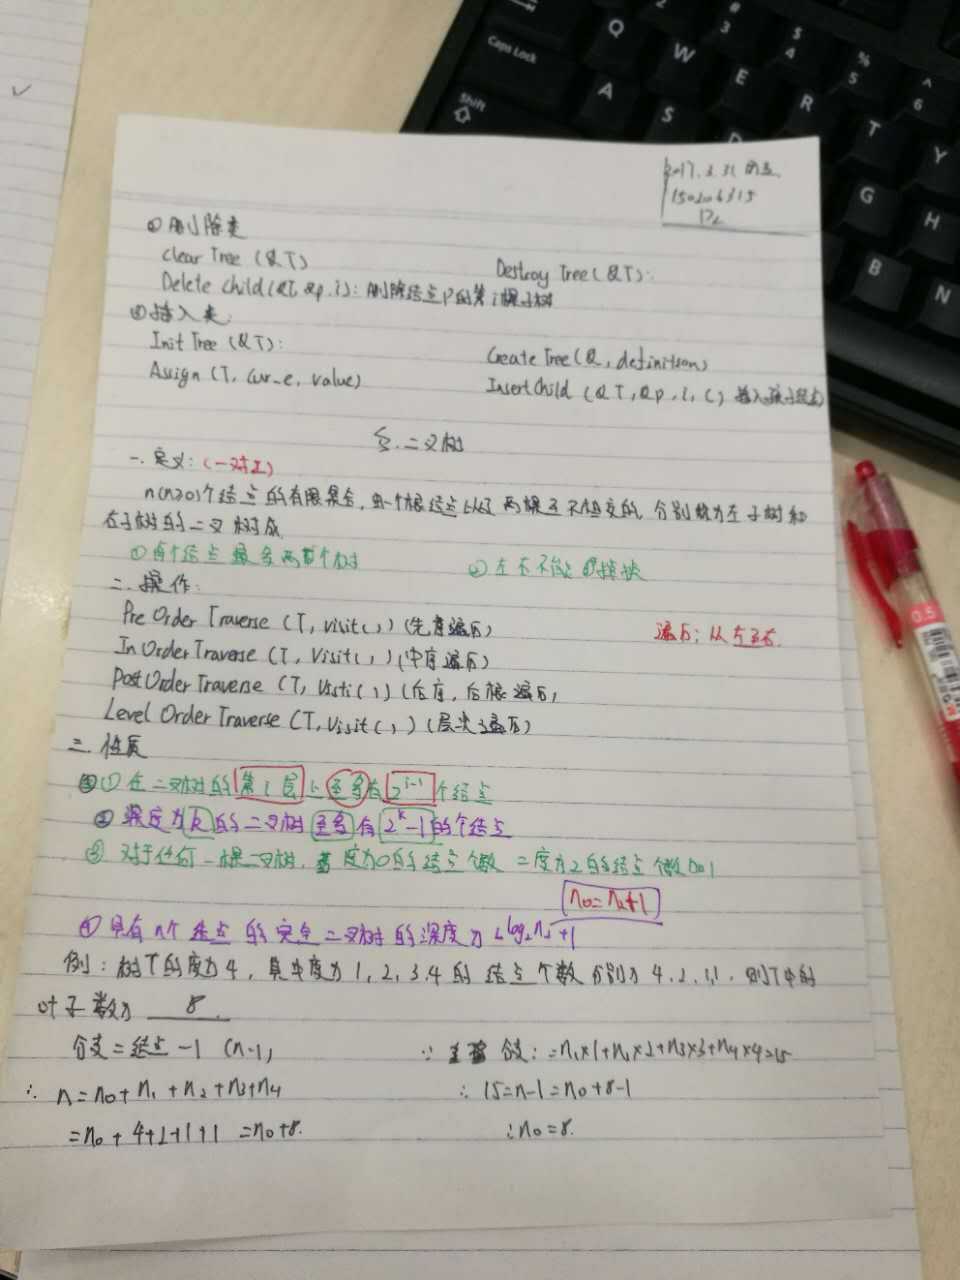 2017.3.31
150206315
①删除类
Clear Tree (&T)
Destroy Tree (&T):
Delete Child(&T, &p, i): 删除结点p的第i棵子树
②插入类:
Init Tree (&T):
Create Tree(&, definition)
Assign (T, cur_e, value)
Insert Child (&T, &p, i, C) 插入孩子结点
§.二叉树
一.定义:(一对二)
n(n≥0)个结点的有限集合,由一个根结点以及两棵互不相交的,分别称为左子树和
右子树的二叉树成
①每个结点最多两个树
②左右不能掉换
二.操作:
Pre Order Traverse (T, visit( , ) (先序遍历)
遍历:从左至右.
In Order Traverse (T, Visit( , ) (中序遍历)
Post Order Traverse (T, Visti( ) ) (后序,后根遍历)
Level Order Traverse (T, Visit( , ) (层次遍历)
三.性质
①在二叉树的第i层上至多有2^{i-1}个结点
②深度为k的二叉树至多有2^k-1的个结点
③对于任何一棵二叉树,度为0的结点个数=度为2的结点个数加1
n0=n2+1
④具有n个结点的完全二叉树的深度为⌊log₂n⌋+1
例:树T的度为4,其中度为1,2,3,4的结点个数分别为4,2,1,1.则T中的
叶子数为 8.
分支=结点-1 (n-1)
∵ 分支:=n1×1+n2×2+n3×3+n4×4=15
∴ n=n0+n1+n2+n3+n4
∴ 15=n-1=n0+8-1
=n0+4+2+1+1=n0+8.
∴n0=8.
Caps Lock
Shift
Q
W
E
R
T
Y
A
S
D
G
H
B
N
#
3
$
4
%
5
^
6
0.5